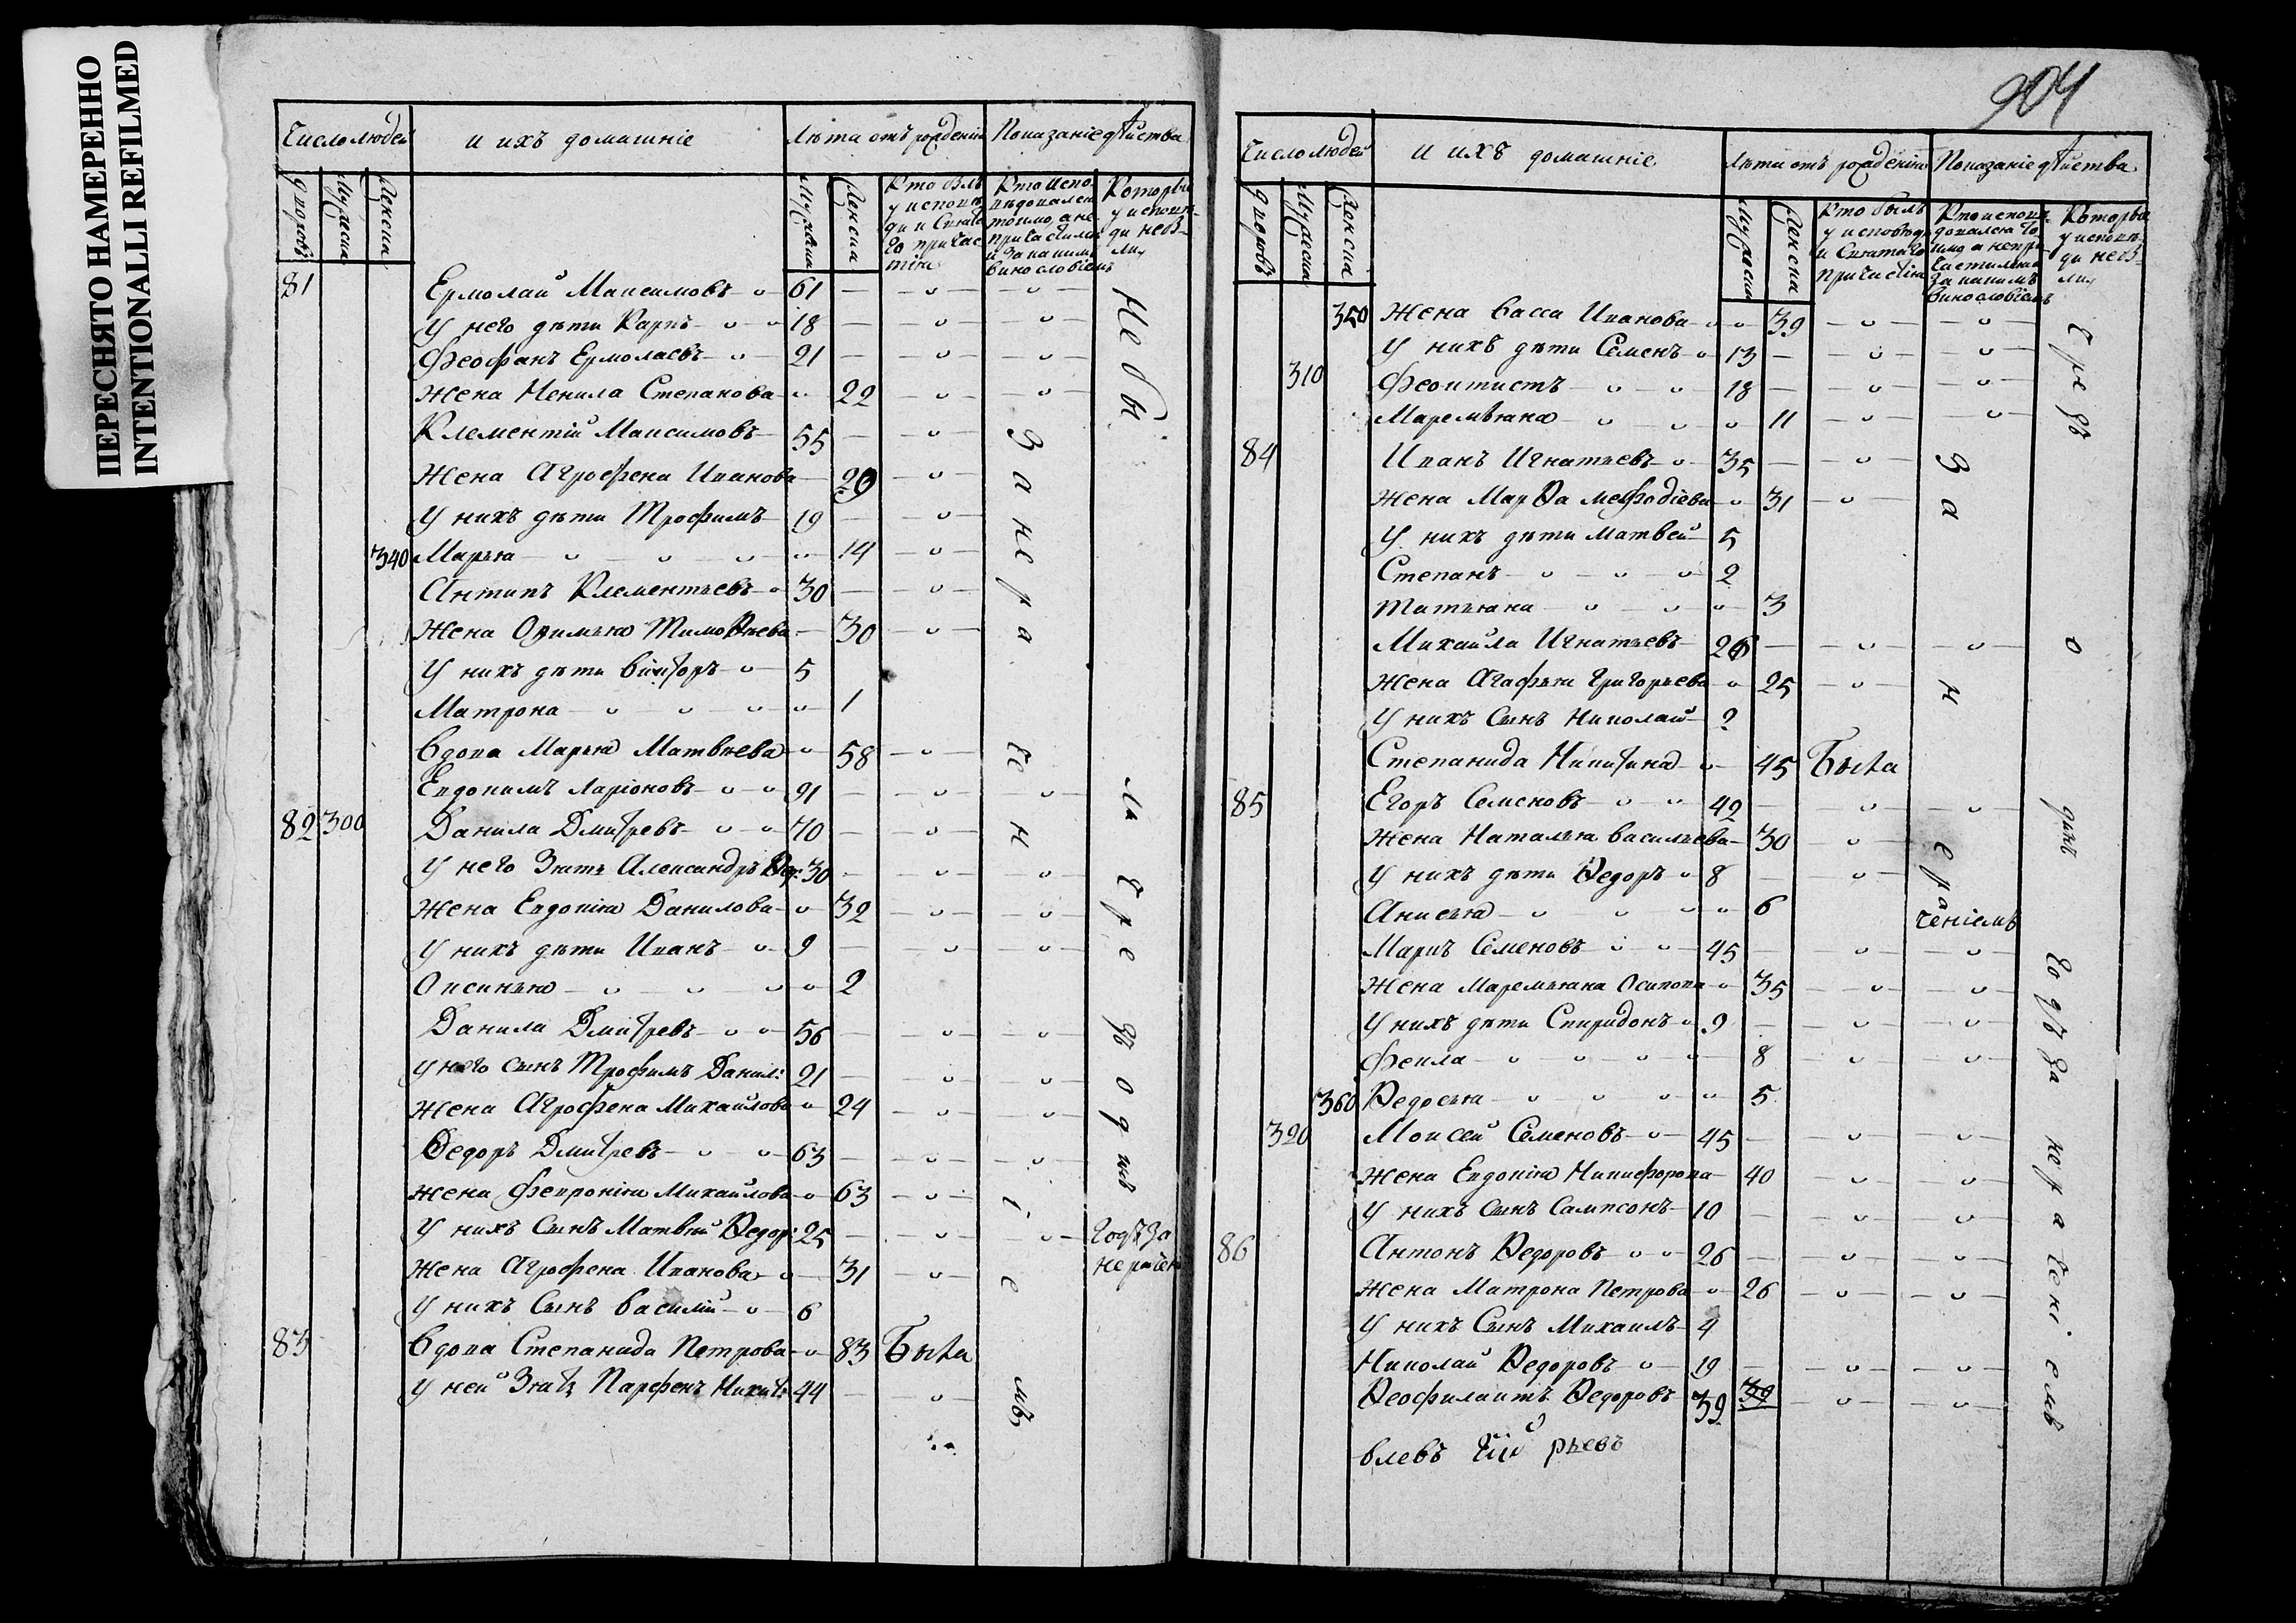 ПЕРЕСНЯТО НАМЕРЕННО
INTENTIONALLI REFILMED
Число людей и ихъ домашніе Лѣта отъ рожденія Показаніе дѣйства
дворовъ Мужеска Женска Мужеска Женска Кто былъ у исповѣди и Святаго причастія Кто исповѣдовался токмо, а не причастился и за какимъ винословіемъ Которые у исповѣди не были
81 Ермолай Максимовъ 61
У него дѣти Карпъ 18
Феофанъ Ермолаевъ 21
Жена Ненила Степанова 22
Клементій Максимовъ 55
Жена Агрофена Иванова 29
У нихъ дѣти Трофимъ 19
340 Марья 14
Антипъ Клементьевъ 30
Жена Офимья Тимоѳѣева 30
У нихъ дѣти Викторъ 5
Матрона 1
Вдова Марья Матвѣева 58
Евдокимъ Ларіоновъ 91
82 300 Данила Дмитревъ 70
У него Зять Александръ Ѳед: 30
Жена Евдокія Данилова 32
У нихъ дѣти Иванъ 9
Оксинья 2
Данила Дмитревъ 56
У него сынъ Трофимъ Данил: 21
Жена Агрофена Михайлова 24
Ѳедоръ Дмитревъ 63
Жена Февронія Михайлова 63
У нихъ Сынъ Матвѣй Ѳедор: 25
Жена Агрофена Иванова 31
У нихъ Сынъ Василій 6
83 Вдова Степанида Петрова 83 Была
У ней Зять Парфенъ Никит: 44
За нераченіемъ
Не были Чрезъ одинъ
годъ за нерачен
904
Число людей и ихъ домашніе Лѣта отъ рожденія Показаніе дѣйства
дворовъ Мужеска Женска Мужеска Женска Кто былъ у исповѣди и Святаго причастія Кто исповѣдовался токмо, а не причастился за какимъ винословіемъ Которые у исповѣди не были
350 Жена Васса Иванова 39
У нихъ дѣти Семенъ 13
310 Феоктистъ 18
Маремьяна 11
84 Иванъ Игнатьевъ 35
Жена Марѳа Мефодіева 31
У нихъ дѣти Матвей 5
Степанъ 2
Татьяна 3
Михайла Игнатьевъ 26
Жена Агафья Григорьева 25
У нихъ Сынъ Николай 2
Степанида Никитина 45 Была
85 Егоръ Семеновъ 42
Жена Наталья Васильева 30
У нихъ дѣти Ѳедоръ 8
Анисья 6
Маркъ Семеновъ 45
Жена Маремьяна Осипова 35
У нихъ дѣти Спиридонъ 9
Фекла 8
360 Ѳедосья 5
320 Моисей Семеновъ 45
Жена Евдокія Никифорова 40
У нихъ Сынъ Сампсонъ 10
86 Антонъ Ѳедоровъ 26
Жена Матрона Петрова 26
У нихъ Сынъ Михаилъ 4
Николай Ѳедоровъ 19
Ѳеофилактъ Ѳедоровъ 39 39
влевъ рьевъ
За нераченіемъ
Чрезъ одинъ годъ за нераченіемъ